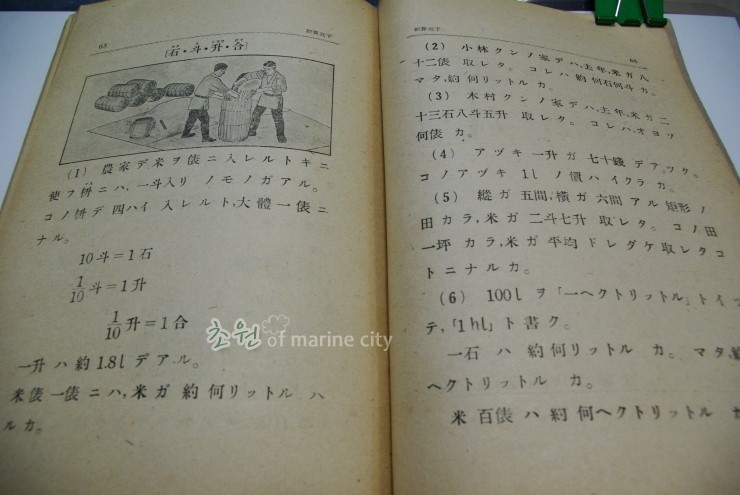 63
初算五下
[石・斗・升・合]
(1) 農家デ米ヲ俵ニ入レルトキニ
使フ枡ニハ、一斗入リ ノモノガアル。
コノ枡デ四ハイ入レルト、大體一俵ニ
ナル。
10斗=1石
1/10斗=1升
1/10升=1合
一升ハ約1.8lデアル。
米俵一俵ニハ、米ガ 約何リットル ハ
ルカ。
초원 of marine city
初算五下
(2) 小林クンノ家デハ、去年、米ガ八
十二俵 取レタ。コレハ 約何石何斗カ。
マタ、約何リットルカ。
(3) 木村クンノ家デハ、去年、米ガ二
十三石八斗五升 取レタ。コレハ、オヨソ
何俵カ。
(4) アヅキ一升ガ七十錢デアツタ。
コノアヅキ 1lノ價ハイクラカ。
(5) 縱ガ五間、横ガ六間アル矩形ノ
田カラ、米ガ二斗七升取レタ。コノ田
一坪カラ、米ガ平均ドレダケ取レタコ
トニナルカ。
(6) 100lヲ「一ヘクトリットル」トイッ
テ、「1hl」ト書ク。
一石ハ約何リットルカ。マタ、約
ヘクトリットルカ。
米百俵ハ約何ヘクトリットル